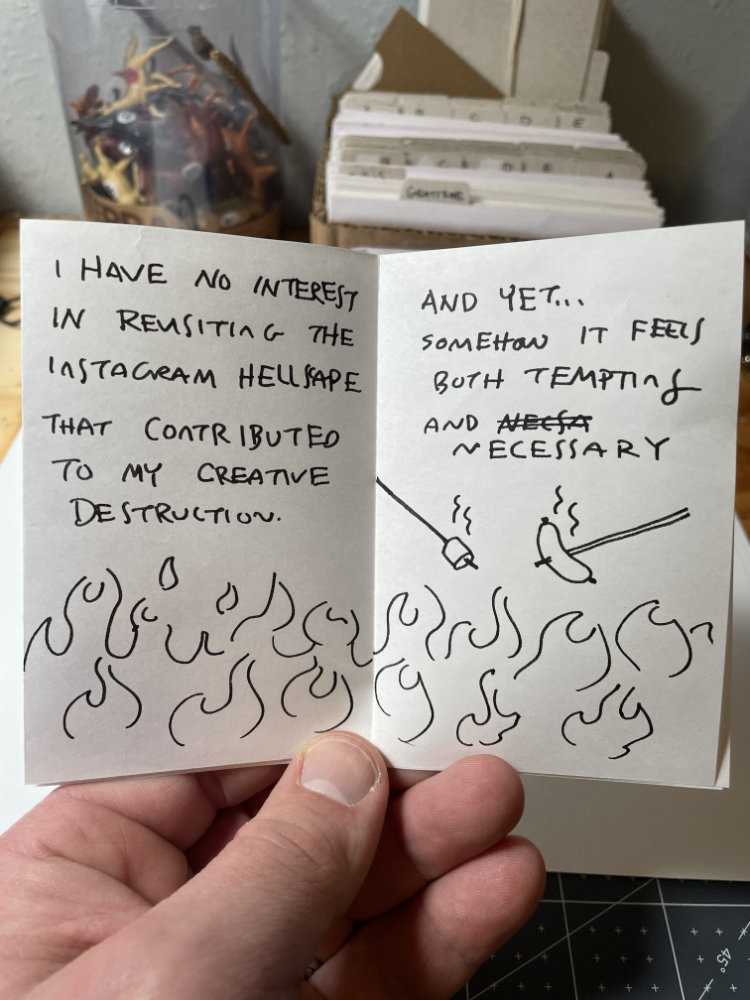 I HAVE NO INTEREST
IN REVISITING THE
INSTAGRAM HELLSAPE
THAT CONTRIBUTED
TO MY CREATIVE
DESTRUCTION.
AND YET...
SOMEHOW IT FEELS
BOTH TEMPTING
AND NECSA
NECESSARY
C D E
45°